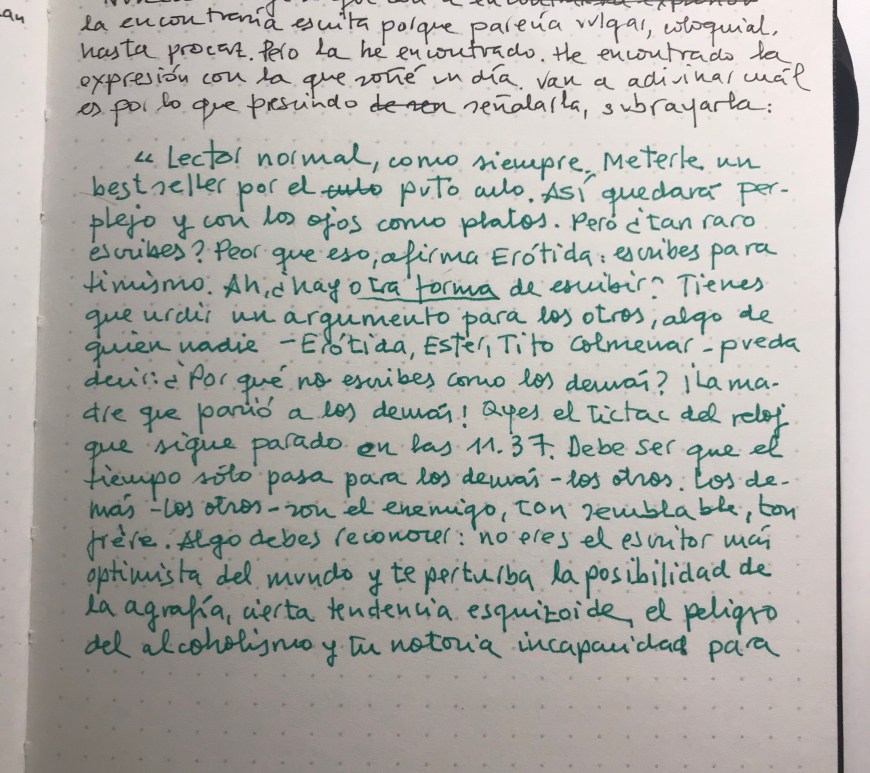 la encontraría escrita porque parecía vulgar, coloquial,
hasta procaz. Pero la he encontrado. He encontrado la
expresión con la que soñé un día. Van a adivinar cuál
es por lo que prescindo de sen señalarla, subrayarla:
“Lector normal, como siempre. Meterle un
best seller por el culo puto culo. Así quedará per-
plejo y con los ojos como platos. Pero ¿tan raro
escribes? Peor que eso, afirma Erótida: escribes para
timismo. Ah, ¿hay otra forma de escribir? Tienes
que urdir un argumento para los otros, algo de
quien nadie -Erótida, Ester, Tito Colmenar- pueda
decir: ¿Por qué no escribes como los demás? ¡La ma-
dre que parió a los demás! Oyes el tictac del reloj
que sigue parado en las 11.37. Debe ser que el
tiempo sólo pasa para los demás -los otros. Los de-
más -los otros- son el enemigo, ton semblable, ton
frère. Algo debes reconocer: no eres el escritor más
optimista del mundo y te perturba la posibilidad de
la agrafía, cierta tendencia esquizoide, el peligro
del alcoholismo y tu notoria incapacidad para